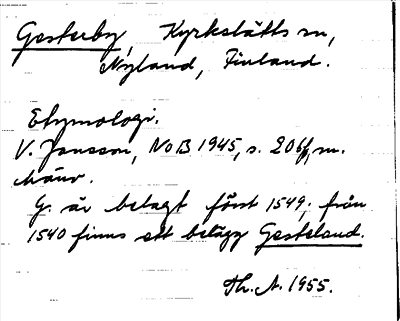 Gesterby, Kyrkslätts sn,
Nyland, Finland.
Etymologi.
V. Jansson, NoB 1945, s. 206f, m.
hänv.
G. är belagt först 1549; från
1540 finns ett belägg Gesteland.
Th. A. 1955.